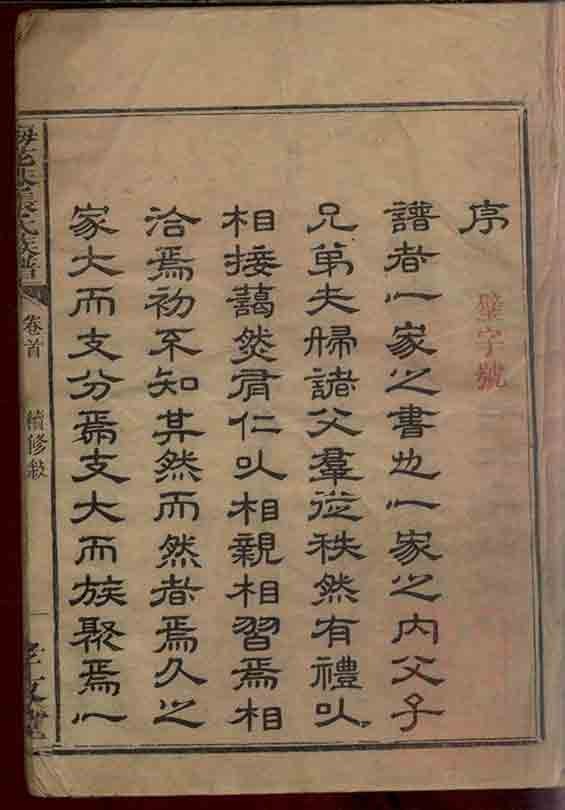 序
譜者一家之書也一家之內父子
兄弟夫婦諸父羣從秩然有禮以
相接藹然有仁以相親相習焉相
洽焉初不知其然而然者焉久之
家大而支分焉支大而族聚焉一
璧字號
氏族譜
卷首
續修敘
一
孝友堂